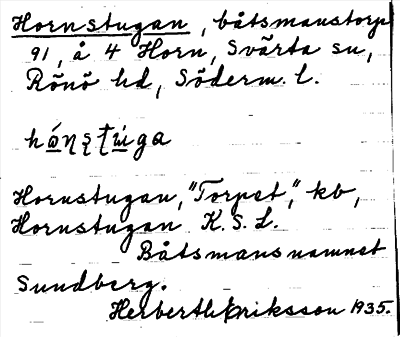 Hornstugan, båtsmanstorp
91, å 4 Horn, Svärta sn,
Rönö hd, Söderm. l.
hɷ́ƞʂʈúga
Hornstugan, "Torpet", kb,
Hornstugan K.S.L.
Båtsmansnamnet
Sundberg.
Herberth Eriksson 1935.